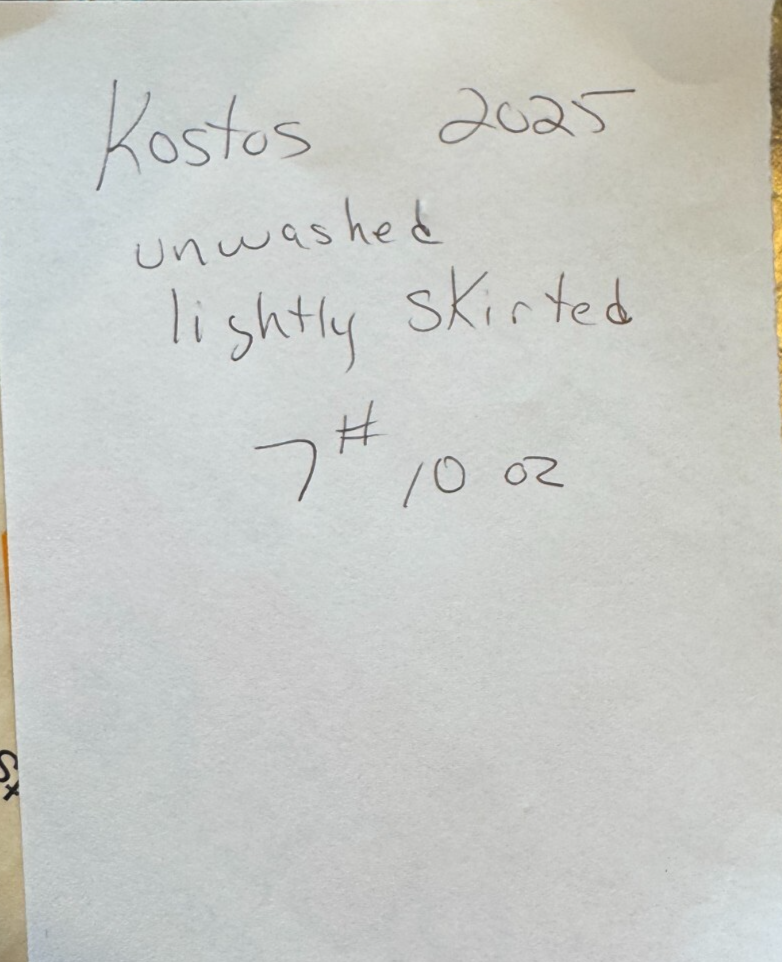 Kostos 2025
unwashed
lightly skirted
7# 10 oz
st